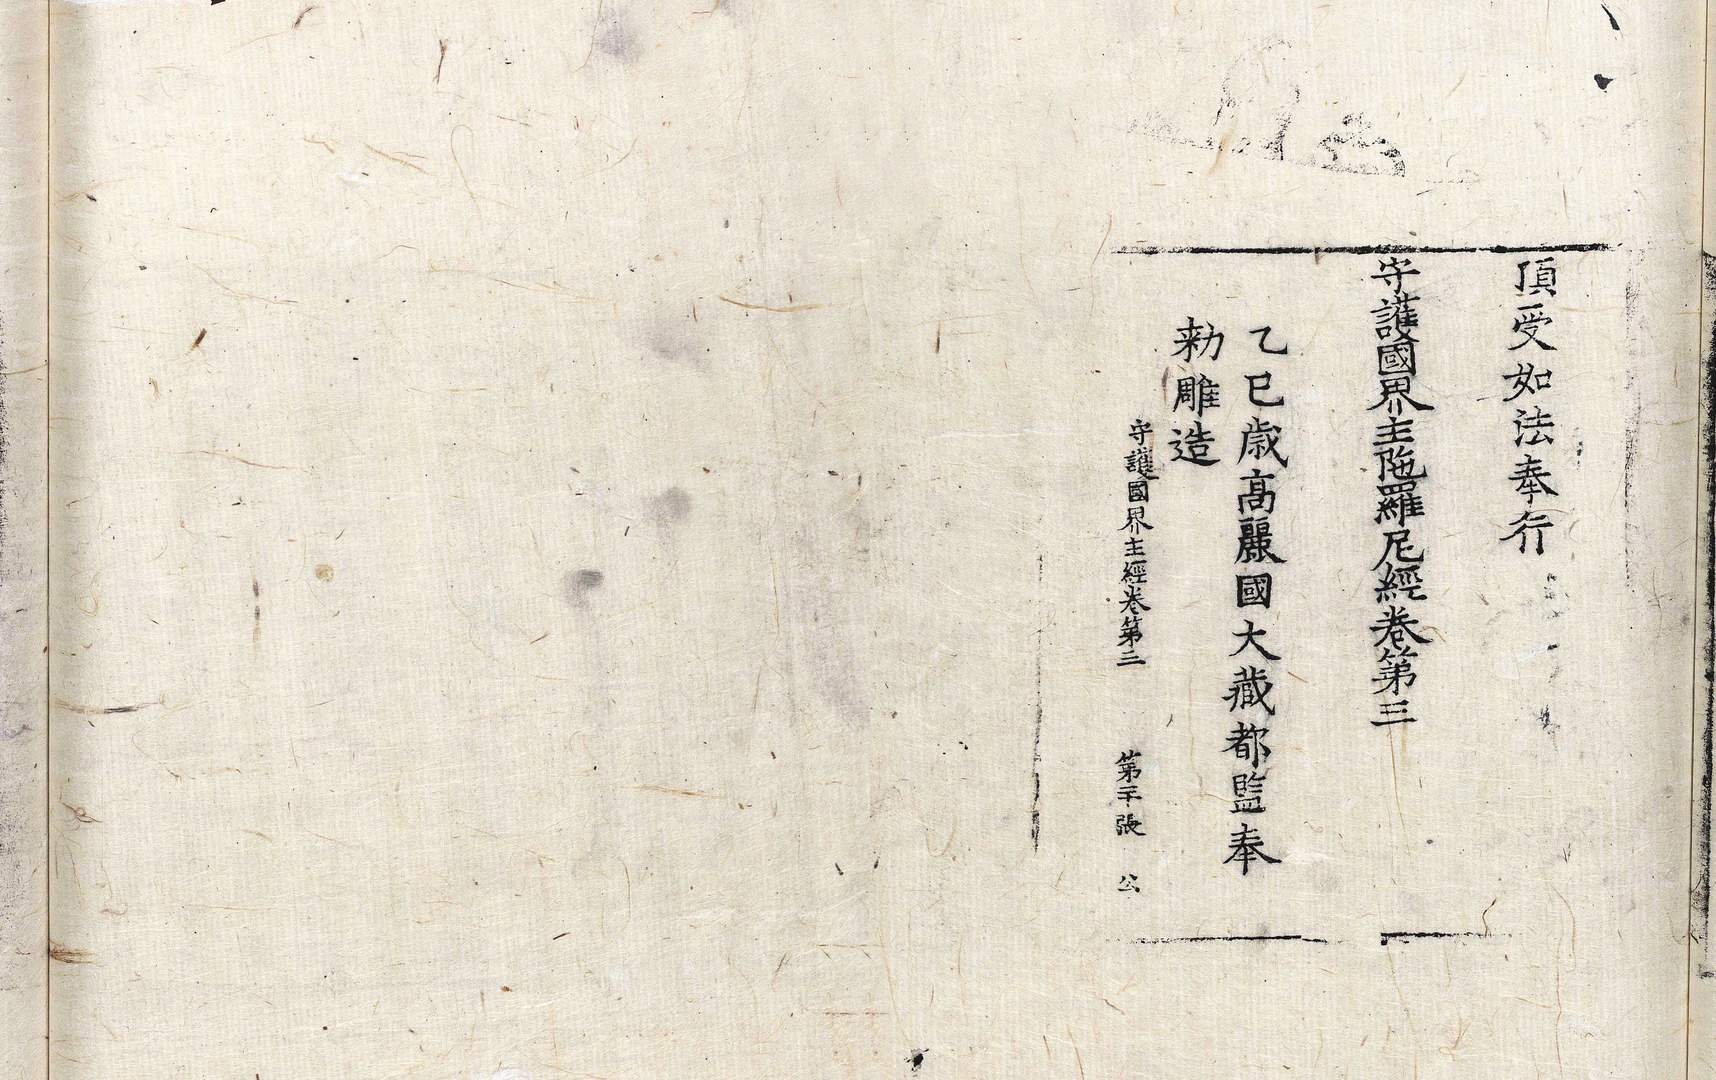 頂受如法奉行
守護國界主陁羅尼經卷第三
乙巳歲高麗國大藏都監奉
勅雕造
守護國界主經卷第三 第二十張 公